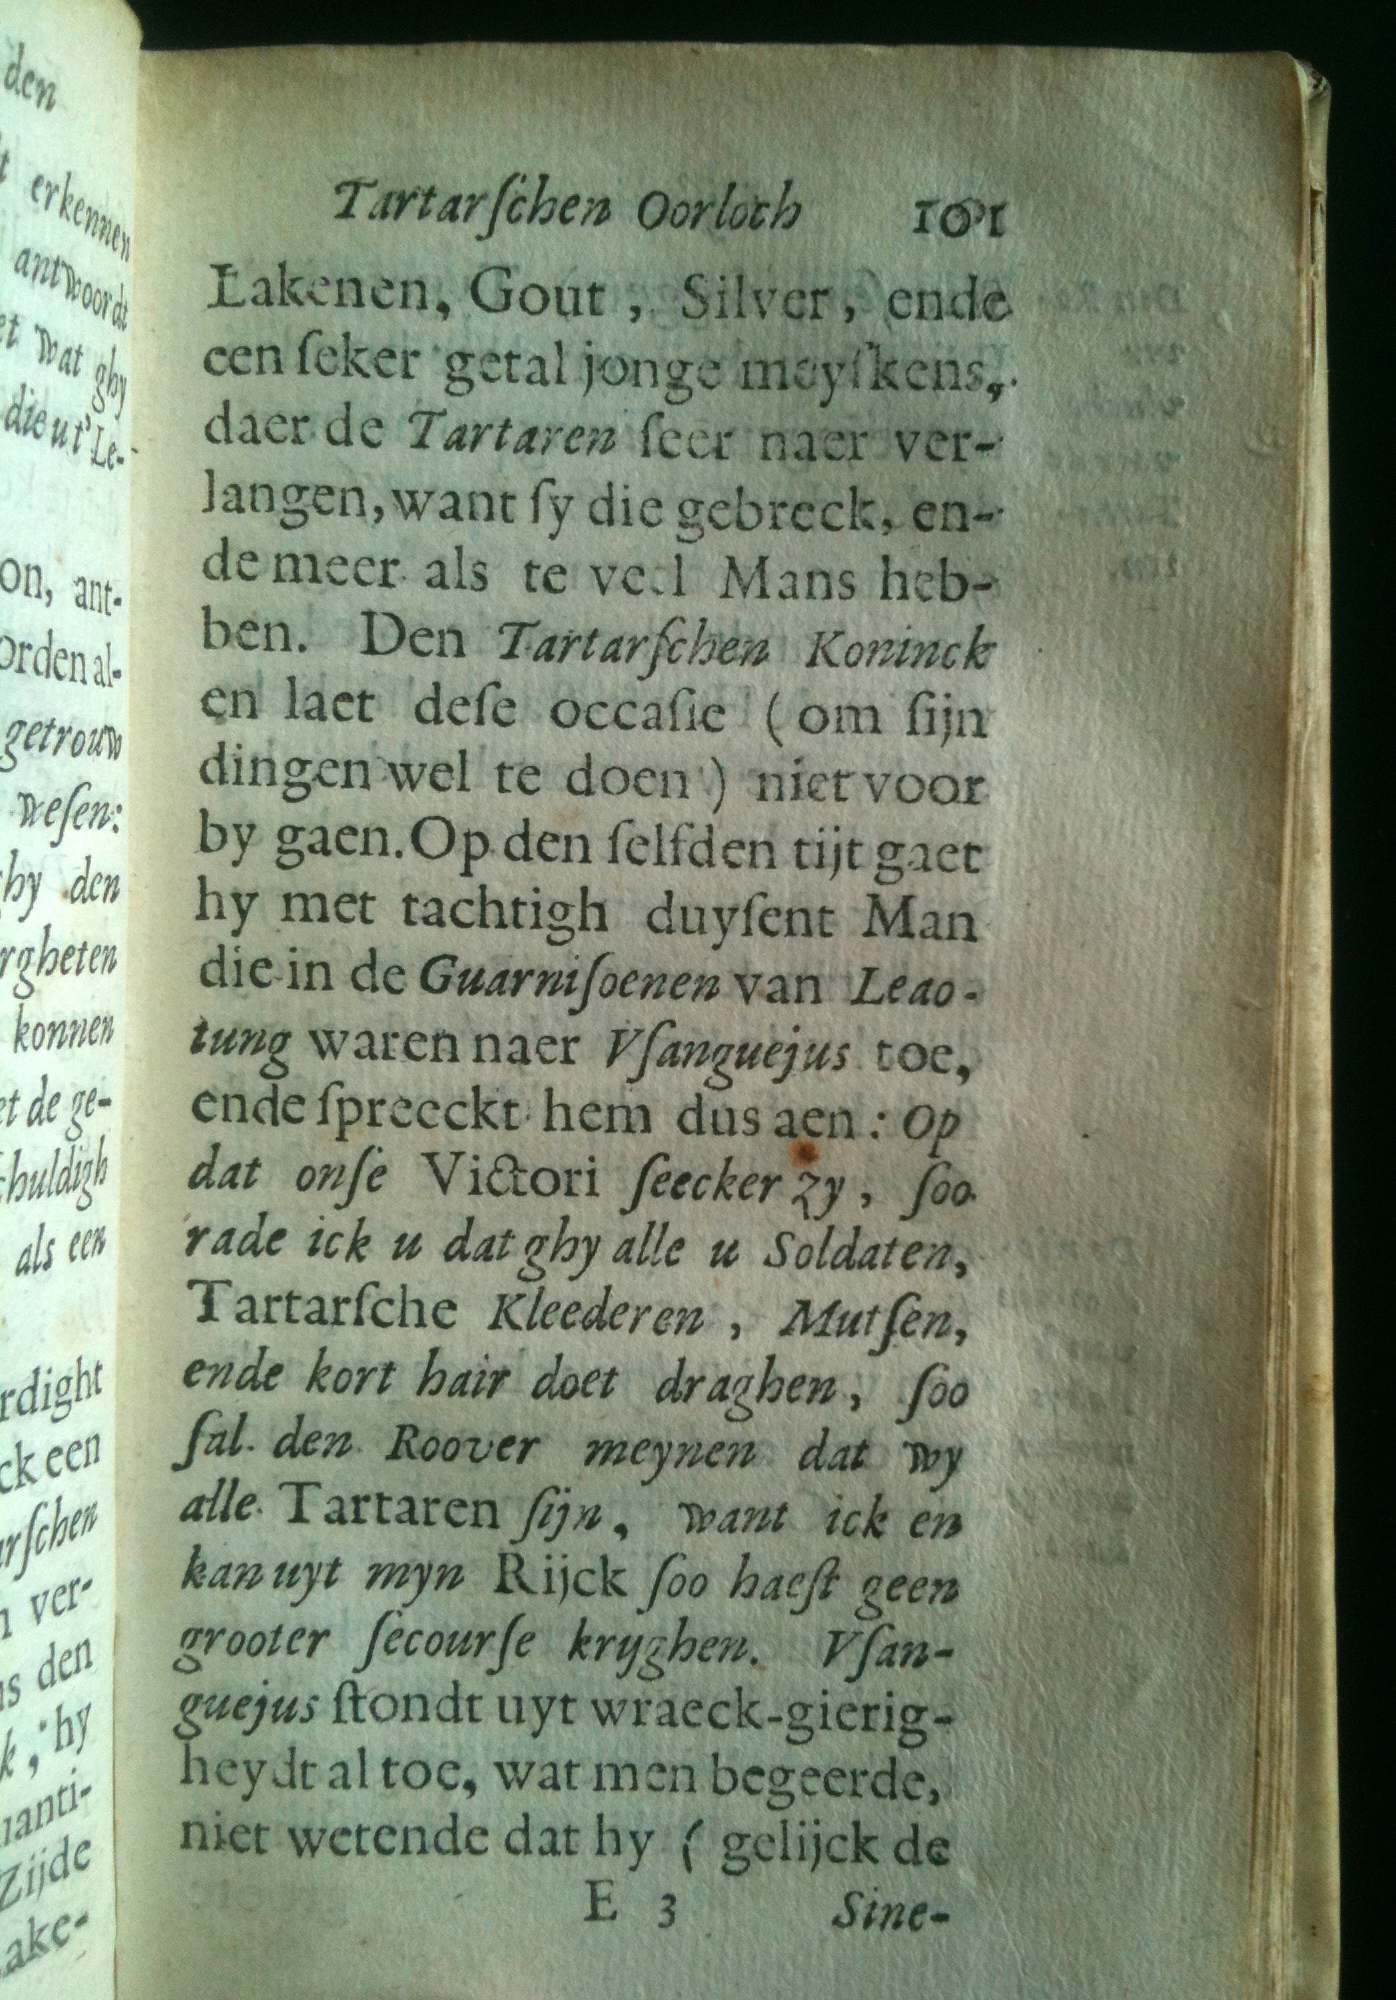 den
erkennen
antwoordt
wat ghy
die ut' Le-
on, ant-
orden al-
getrouw
weſen:
hy den
rgheten
konnen
et de ge-
huldigh
als een
rdight
ck een
rſchen
ver-
den
hy
anti-
Zijde
ake-
Tartarſchen Oorloch 101
Lakenen, Gout, Silver, ende
een ſeker getal jonge meyſkens,
daer de Tartaren ſeer naer ver-
langen, want ſy die gebreck, en-
de meer als te veel Mans heb-
ben. Den Tartarſchen Koninck
en laet deſe occaſie (om ſijn
dingen wel te doen) niet voor
by gaen. Op den ſelfden tijt gaet
hy met tachtigh duyſent Man
die in de Guarniſoenen van Leao-
tung waren naer Vſanguejus toe,
ende ſpreeckt hem dus aen: Op
dat onſe Victori ſeecker zy, ſoo
rade ick u dat ghy alle u Soldaten,
Tartarſche Kleederen, Mutſen,
ende kort hair doet draghen, ſoo
ſal den Roover meynen dat wy
alle Tartaren ſijn, want ick en
kan uyt myn Rijck ſoo haeſt geen
grooter ſecourſe kryghen. Vſan-
guejus ſtondt uyt wraeck-gierig-
heydt al toe, wat men begeerde,
niet wetende dat hy (gelijck de
E 3 Sine-